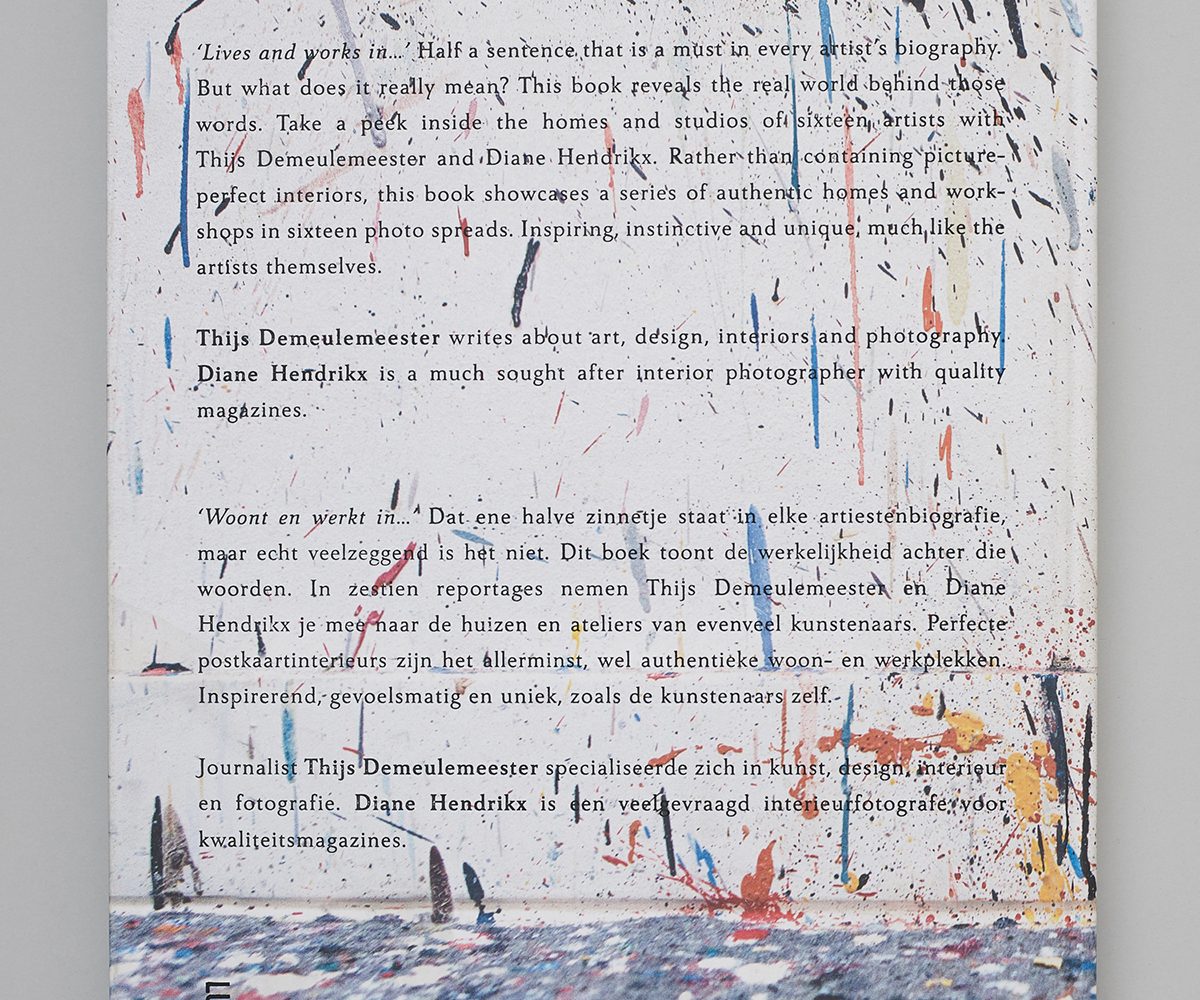 ‘Lives and works in...’ Half a sentence that is a must in every artist’s biography.
But what does it really mean? This book reveals the real world behind those
words. Take a peek inside the homes and studios of sixteen artists with
Thijs Demeulemeester and Diane Hendrikx. Rather than containing picture-
perfect interiors, this book showcases a series of authentic homes and work-
shops in sixteen photo spreads. Inspiring, instinctive and unique, much like the
artists themselves.
Thijs Demeulemeester writes about art, design, interiors and photography.
Diane Hendrikx is a much sought after interior photographer with quality
magazines.
‘Woont en werkt in...’ Dat ene halve zinnetje staat in elke artiestenbiografie,
maar echt veelzeggend is het niet. Dit boek toont de werkelijkheid achter die
woorden. In zestien reportages nemen Thijs Demeulemeester en Diane
Hendrikx je mee naar de huizen en ateliers van evenveel kunstenaars. Perfecte
postkaartinterieurs zijn het allerminst, wel authentieke woon- en werkplekken.
Inspirerend, gevoelsmatig en uniek, zoals de kunstenaars zelf.
Journalist Thijs Demeulemeester specialiseerde zich in kunst, design, interieur
en fotografie. Diane Hendrikx is een veelgevraagd interieurfotografe voor
kwaliteitsmagazines.